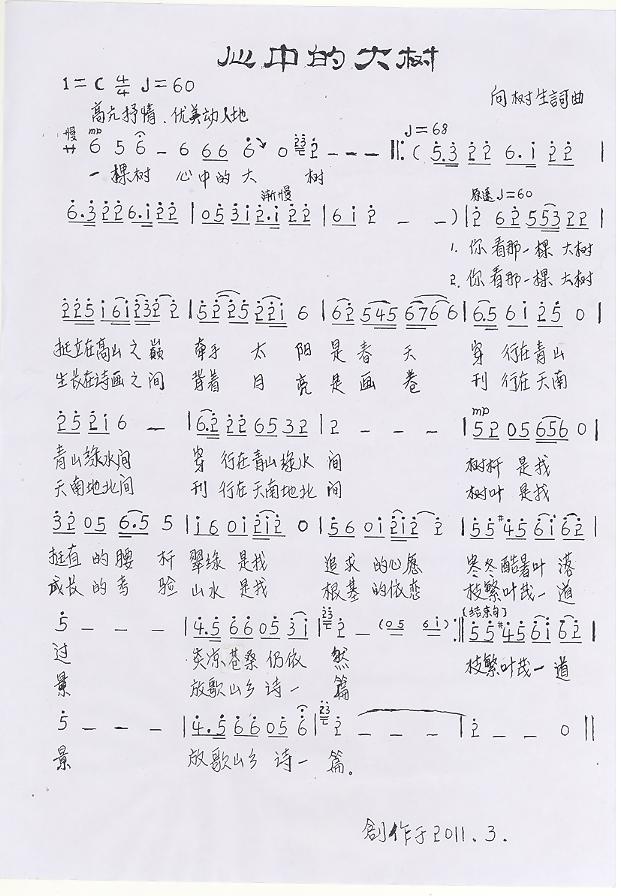 心中的大树
1=C 4/4 ♩=60
向树生詞曲
高亢抒情．优美动人地
慢 mp ♩=68
サ 6 5 6 – 6 6 6 6 0 2 – – – ‖: ( 5.3 2 2 6.i 2 2 |
一棵树 心中的大 树
渐慢 原速 ♩=60
6.3 2 2 6.i 2 2 | 0 5 3 i 2.i 2 2 | 6 i 2 – – ) | 2 6 2 5 5 3 2 2 |
1. 你看那一棵大树
2. 你看那一棵大树
2 2 5 i 6 i 2 3 2 2 | 5 2 2 5 2 2 i 6 | 6 2 5 4 5 6 7 6 6 | 6.5 6 i 2 5 0 |
挺立在高山之巅 牵手太阳是春天 穿行在青山
生长在诗画之间 背着月亮是画卷 刊行在天南
2 5 2 i 6 – | 6.2 2 2 6 5 3 2 | 2 – – – | mp 5 2 0 5 6 5 6 0 |
青山绿水间 穿行在青山绿水间 树杆是我
天南地北间 刊行在天南地北间 树叶是我
3 2 0 5 6.5 5 | i 6 0 i 2 i 2 0 | 5 6 0 i 2 i 2 2 | 5 5 #4 5 6 i 6 2 |
挺直的腰杆 翠绿是我 追求的心愿 寒冬酷暑叶落
成长的考验 山水是我 根基的依恋 枝繁叶茂一道
5 – – – | 4.5 6 6 0 5 3 i | 2 – (0 5 6 i) :‖ [结束句] 5 5 #4 5 6 i 6 2 |
过 炎凉苍桑仍依然 枝繁叶茂一道
景 放歌山乡诗一篇
5 – – – | 4.5 6 6 0 5 6 | 2 – – – | 2 – – 0 ‖
景 放歌山乡诗一篇。
創作于2011.3.